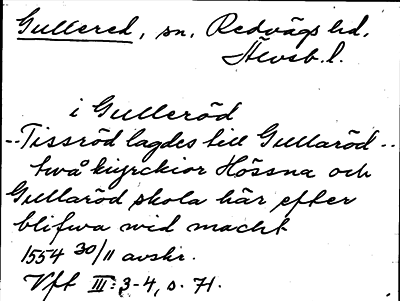 Gullered, sn, Redvägs hd,
Älvsb. l.
i Gulleröd
--Tissröd lagdes till Gullaröd--
twå kiyrckior Hössna och
Gullaröd skola här efter
blifwa wid macht
1554 30/11 avskr.
Vft III:3-4, s. 71.